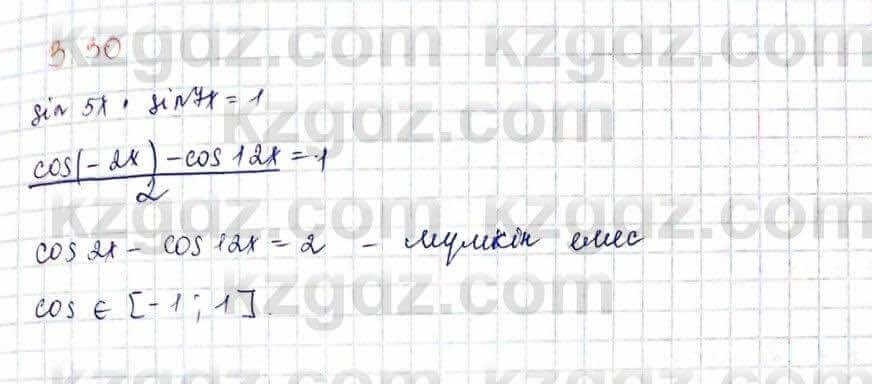 3.30
kzgdz.com kzgdz.com
sin 5x · sin 7x = 1
kzgdz.com
cos(-2x) - cos 12x = 1
2
kzgdz.com kzgdz.com
cos 2x - cos 12x = 2 - мүмкін емес
cos ∈ [-1; 1].
kzgdz.com
kzgdz.com kzgdz.com